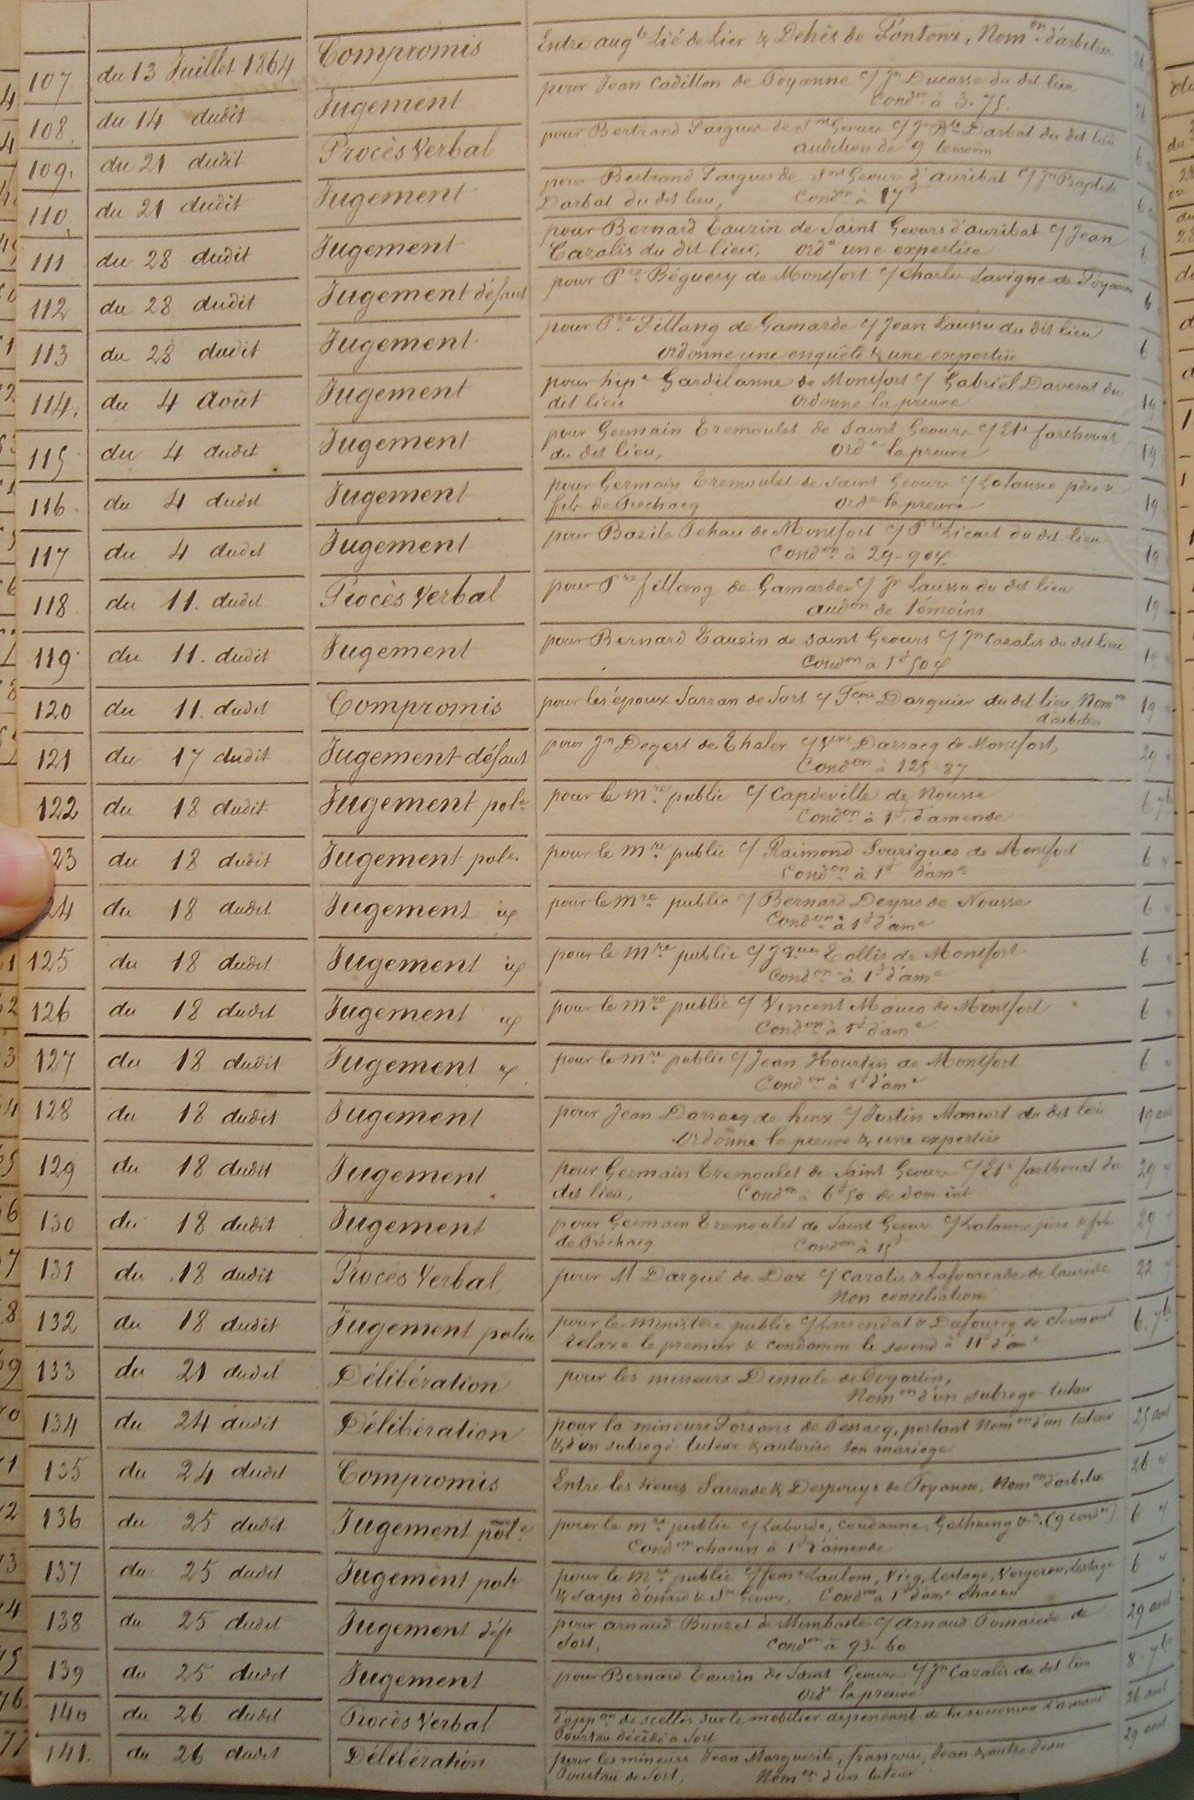 107 du 13 Juillet 1864 Compromis Entre augte Lié de Lier & Dehés de Pontonx, Nomon d'arbitre
108 du 14 dudit Jugement pour Jean Cadillon de Poyanne c/ Jn Ducasse du dit lieu
Condon à 3.75.
109. du 21 dudit Procès Verbal pour Bertrand Sarques de Snt Geours c/ Jn Bte Darbat du dit lieu
audition de 9 témoins
110. du 21 dudit Jugement pour Bertrand Sarques de Snt Geours d'auribat c/ Jn Baptiste
Darbat du dit lieu, Condon à 17f
111 du 28 dudit Jugement pour Bernard Tauzin de Saint Geours d'auribat c/ Jean
Cazalis du dit lieu, orde une expertise
112 du 28 dudit Jugement défaut pour Pre Béguery de Montfort c/ Charles Lavigne de Poyanne 6
113 du 28 dudit Jugement pour Pre Fillang de Gamarde c/ Jean Laussu du dit lieu 6
ordonne une enquête & une expertise
114. du 4 Août Jugement pour hipe Gardilanne de Montfort c/ Gabriel Daverat du 19
dit lieu ordonne la preuve
115 du 4 dudit Jugement pour Germain Tremoulet de Saint Geours c/ Ete farthouat 19
du dit lieu, orde la preuve
116. du 4 dudit Jugement pour Germain Tremoulet de Saint Geours c/ Lalanne père & 19
fils de Préchacq orde la preuve
117 du 4 dudit Jugement pour Bazile Pehau de Montfort c/ Pre Licart du dit lieu 19
Condon à 29-90c
118 du 11. dudit Procès Verbal pour Pre fillang de Gamarde c/ Jn Laussu du dit lieu 19
audon de témoins
119 du 11. dudit Jugement pour Bernard Tauzin de Saint Geours c/ Jn Cazalis du dit lieu 19
Condon à 1f 50c
120 du 11. dudit Compromis pour les époux Sarran de Sort c/ Fcois Darquier du dit lieu, Nomon 19
d'arbitres
121 du 17 dudit Jugement défaut pour Jn Degert de Thaler c/ Darracq de Montfort, 29
Condon à 125-87
122 du 18 dudit Jugement pole pour le mre public c/ Capdeville de Nousse 6 7b
Condon à 1f d'amende
23 du 18 dudit Jugement pole pour le mre public c/ Raimond Sourigues de Montfort 6
Condon à 1f d'ame
24 du 18 dudit Jugement pour le mre public c/ Bernard Deyris de Nousse 6
Condon à 1f d'ame
125 du 18 dudit Jugement pour le mre public c/ Jques Tollis de Montfort 6
Condon à 1f d'ame
126 du 18 dudit Jugement pour le mre public c/ Vincent Mauco de Montfort 6
Condon à 1f d'ame
127 du 18 dudit Jugement pour le mre public c/ Jean Hourtin de Montfort 6
Condon à 1f d'ame
128 du 18 dudit Jugement pour Jean Darracq de hinx c/ Justin Mancort du dit lieu 19 aout
ordonne la preuve & une expertise
129 du 18 dudit Jugement pour Germain Tremoulet de Saint Geours c/ Ete farthouat du 29
dit lieu, Condon à 6f 50 de dom int
130 du 18 dudit Jugement pour Germain Tremoulet de Saint Geours c/ Lalanne père & fils 29
de Préchacq Condon à 15f
131 du 18 dudit Procès Verbal pour M Darqué de Dax c/ Cazalis & Lafourcade de Laurede 22
Non conciliation
132 du 18 dudit Jugement police pour le ministère public c/ Larrendat & Dufourcq de Clermont 6. 7b
relaxe le premier & condamne le second à 11f d'am
133 du 21 dudit Délibération pour les mineurs Dimale de Poyartin,
Nomon d'un subrogé tuteur
134 du 24 dudit Délibération pour la mineure Forsans de Cassacq, portant Nomon d'un tuteur 25 aout
& d'un subrogé tuteur & autorise son mariage
135 du 24 dudit Compromis Entre les sieurs Sarrade & Despouys de Poyanne, Nomon d'arbitre 26
136 du 25 dudit Jugement pole pour le mre public c/ Laborde, Condanne, Gathaeng &a (9 condon) 6
Condon chacun à 1f d'amende
137 du 25 dudit Jugement pole pour le mre public c/ feme Laulom, Vicq, Lestage, Vergeron, Lestage 6
& Saijs d'onard & Snt Geours. Condon à 1f d'ame chacun
138 du 25 dudit Jugement déft pour arnaud Bouzet de Mimbaste c/ arnaud Pomarède de 29 aout
Sort, Condon à 93-60
139 du 25 dudit Jugement pour Bernard Tauzin de Saint Geours c/ Jn Cazalis du dit lieu 8-7b
orde la preuve
140 du 26 dudit Procès Verbal d'appon de scellés sur le mobilier dépendant de la succession d'amand 26 aout
Poustau décédé à Sort
141. du 26 dudit Délibération pour les mineurs Jean Marguerite, françoise, Jean & autre Jean 29 aout
Poustau de Sort, Nomon d'un tuteur